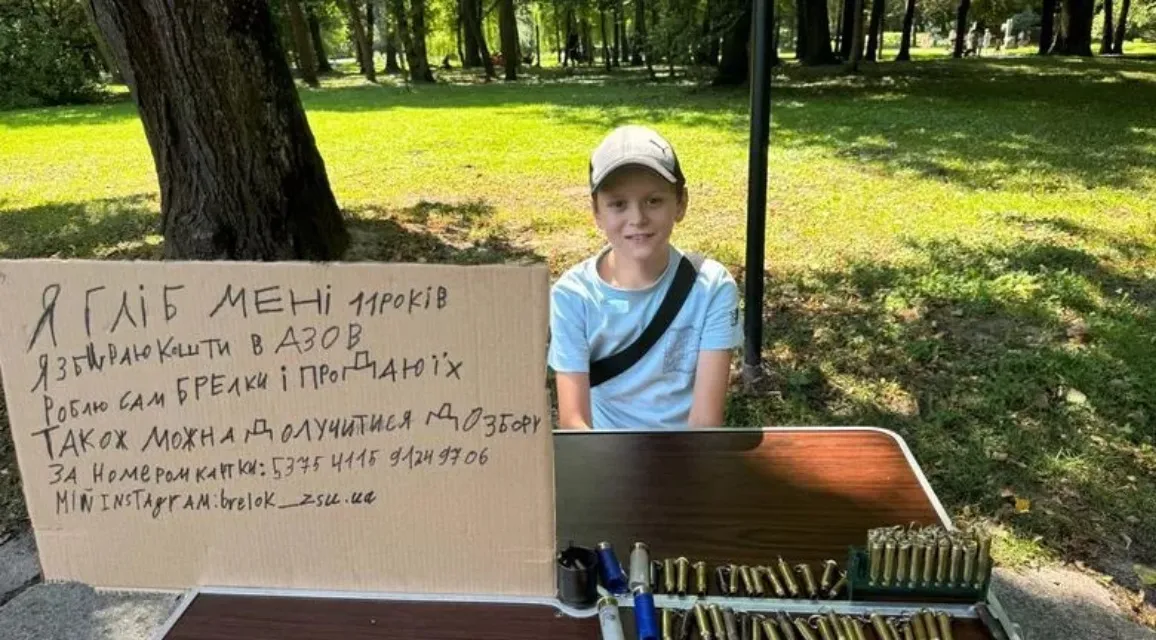 Я ГЛІБ МЕНІ 11 РОКІВ
Я ЗБИРАЮ КОШТИ В АЗОВ
РОБЛЮ САМ БРЕЛКИ І ПРОДАЮ ЇХ
ТАКОЖ МОЖНА ДОЛУЧИТИСЯ ДО ЗБОРУ
ЗА НОМЕРОМ КАРТКИ: 5375 4115 9124 9706
МІЙ INSTAgRAM: brelok_zsu.ua